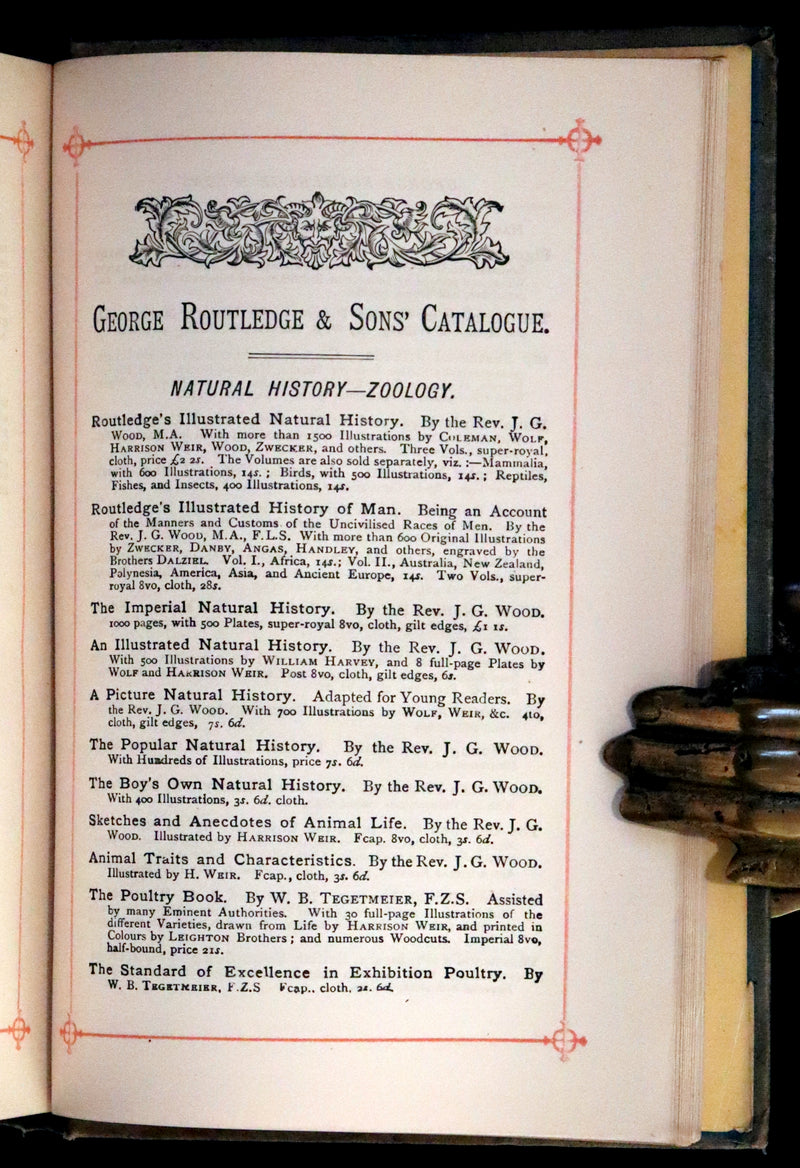 GEORGE ROUTLEDGE & SONS' CATALOGUE.
NATURAL HISTORY—ZOOLOGY.
Routledge's Illustrated Natural History. By the Rev. J. G.
WOOD, M.A. With more than 1500 Illustrations by COLEMAN, WOLF,
HARRISON WEIR, WOOD, ZWECKER, and others. Three Vols., super-royal,
cloth, price £2 2s. The Volumes are also sold separately, viz. :—Mammalia,
with 600 Illustrations, 14s. ; Birds, with 500 Illustrations, 14s. ; Reptiles,
Fishes, and Insects, 400 Illustrations, 14s.
Routledge's Illustrated History of Man. Being an Account
of the Manners and Customs of the Uncivilised Races of Men. By the
Rev. J. G. WOOD, M.A., F.L.S. With more than 600 Original Illustrations
by ZWECKER, DANBY, ANGAS, HANDLEY, and others, engraved by the
Brothers DALZIEL. Vol. I., Africa, 14s.; Vol. II., Australia, New Zealand,
Polynesia, America, Asia, and Ancient Europe, 14s. Two Vols., super-
royal 8vo, cloth, 28s.
The Imperial Natural History. By the Rev. J. G. WOOD.
1000 pages, with 500 Plates, super-royal 8vo, cloth, gilt edges, £1 1s.
An Illustrated Natural History. By the Rev. J. G. WOOD.
With 500 Illustrations by WILLIAM HARVEY, and 8 full-page Plates by
WOLF and HARRISON WEIR. Post 8vo, cloth, gilt edges, 6s.
A Picture Natural History. Adapted for Young Readers. By
the Rev. J. G. WOOD. With 700 Illustrations by WOLF, WEIR, &c. 4to,
cloth, gilt edges, 7s. 6d.
The Popular Natural History. By the Rev. J. G. WOOD.
With Hundreds of Illustrations, price 7s. 6d.
The Boy's Own Natural History. By the Rev. J. G. WOOD.
With 400 Illustrations, 3s. 6d. cloth.
Sketches and Anecdotes of Animal Life. By the Rev. J. G.
WOOD. Illustrated by HARRISON WEIR. Fcap. 8vo, cloth, 3s. 6d.
Animal Traits and Characteristics. By the Rev. J. G. WOOD.
Illustrated by H. WEIR. Fcap., cloth, 3s. 6d.
The Poultry Book. By W. B. TEGETMEIER, F.Z.S. Assisted
by many Eminent Authorities. With 30 full-page Illustrations of the
different Varieties, drawn from Life by HARRISON WEIR, and printed in
Colours by LEIGHTON Brothers ; and numerous Woodcuts. Imperial 8vo,
half-bound, price 21s.
The Standard of Excellence in Exhibition Poultry. By
W. B. TEGETMEIER, F.Z.S Fcap., cloth, 2s. 6d.